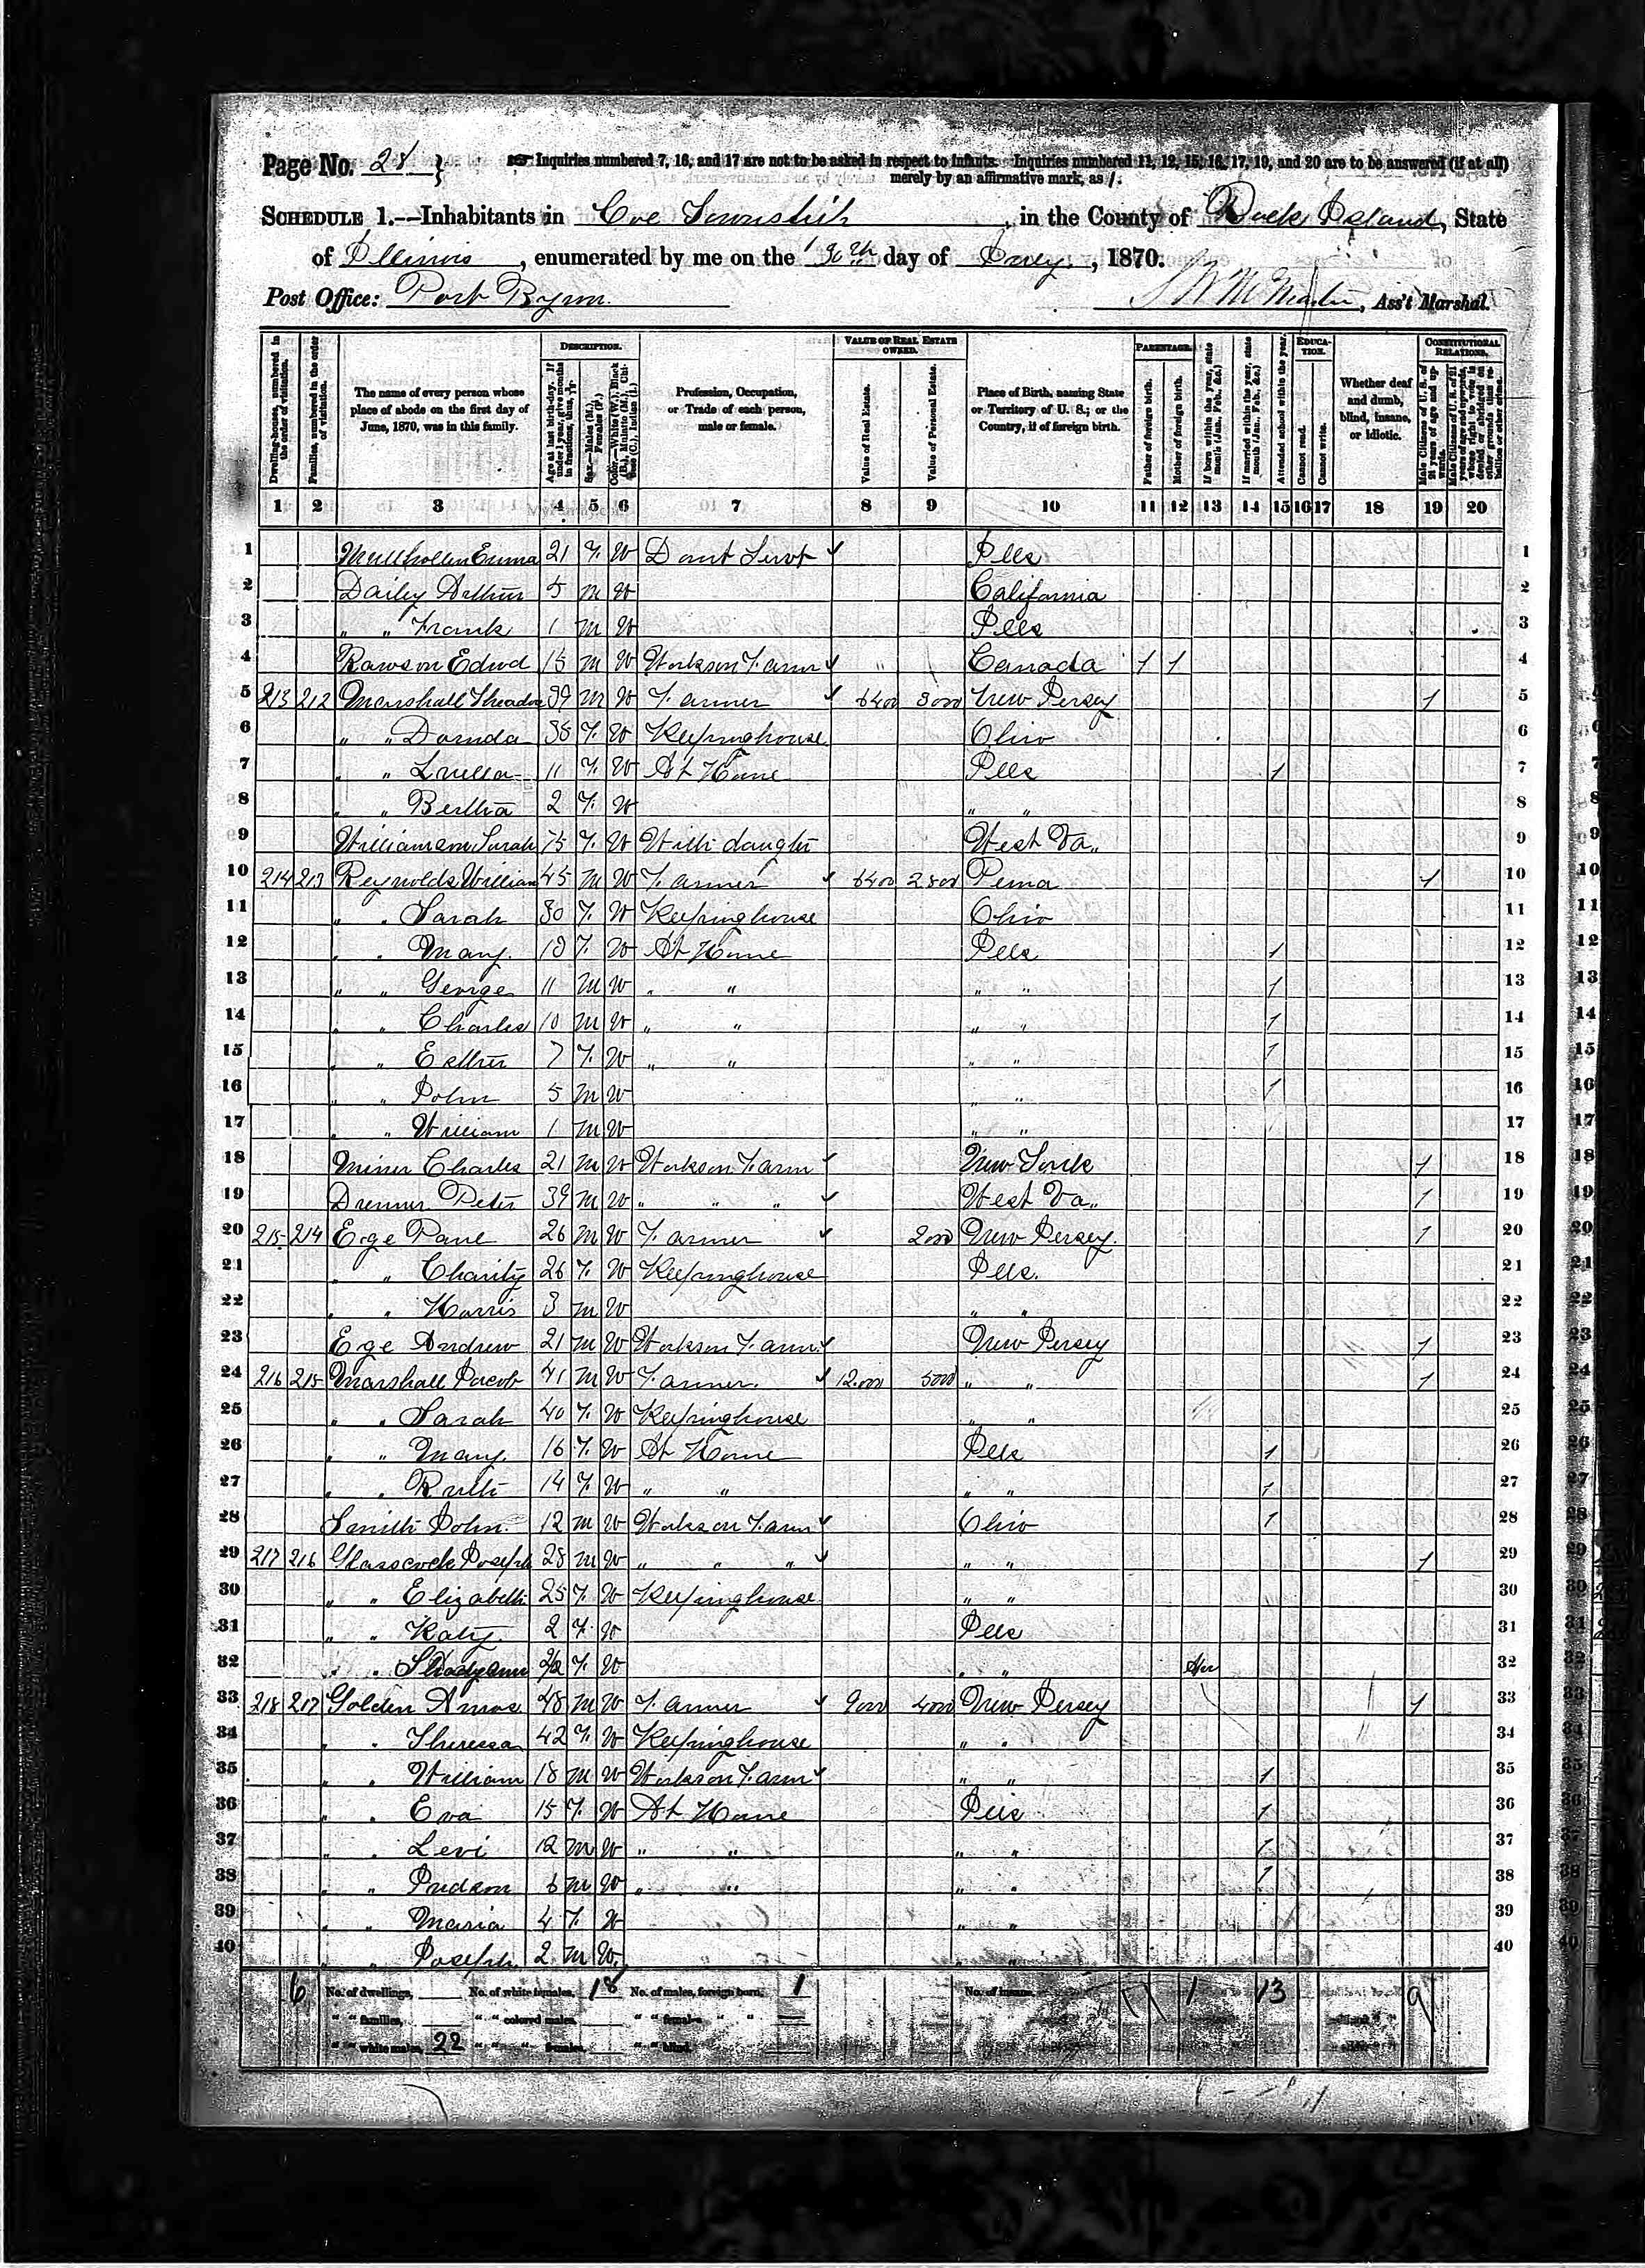 Page No. 28 } Inquiries numbered 7, 16, and 17 are not to be asked in respect to infants. Inquiries numbered 11, 12, 15, 16, 17, 19, and 20 are to be answered (if at all)
merely by an affirmative mark, as /.
SCHEDULE 1.--Inhabitants in Coe Township, in the County of Rock Island, State
of Illinois, enumerated by me on the 30th day of July, 1870.
Post Office: Port Byron. , Ass't Marshal.
Dwelling-house, numbered in the order of visitation.
Families, numbered in the order of visitation.
The name of every person whose place of abode on the first day of June, 1870, was in this family.
DESCRIPTION.
Age at last birth-day. If under 1 year, give months in fractions, thus,
Sex.--Males (M.), Females (F.)
Color.--White (W.), Black (B.), Mulatto (M.), Chinese (C.), Indian (I.)
Profession, Occupation, or Trade of each person, male or female.
VALUE OF REAL ESTATE OWNED.
Value of Real Estate.
Value of Personal Estate.
Place of Birth, naming State or Territory of U. S.; or the Country, if of foreign birth.
PARENTAGE.
Father of foreign birth.
Mother of foreign birth.
If born within the year, state month (Jan., Feb., &c.)
If married within the year, state month (Jan., Feb., &c.)
Attended school within the year.
EDUCATION.
Cannot read.
Cannot write.
Whether deaf and dumb, blind, insane, or idiotic.
CONSTITUTIONAL RELATIONS.
Male Citizens of U. S. of 21 years of age and upwards.
Male Citizens of U. S. of 21 years of age and upwards, whose right to vote is denied or abridged on other grounds than rebellion or other crime.
1 2 3 4 5 6 7 8 9 10 11 12 13 14 15 16 17 18 19 20
1 Mullhollen Emma 21 F W Domt Servt Ills 1
2 Dailey Arthur 5 M W California 2
3 " " Frank 1 M W Ills 3
4 Rawson Edwd 15 M W Works on Farm Canada 1 1 4
5 213 212 Marshall Theadore 39 M W Farmer 6400 3000 New Jersey 1 5
6 " " Dorinda 38 F W Keeping house Ohio 6
7 " " Luella 11 F W At Home Ills 1 7
8 " " Bertha 2 F. W " " 8
9 Williamson Sarah 75 F. W With daughter West Va,, 9
10 214 213 Reynolds William 45 M W Farmer 6400 2800 Penna 1 10
11 " " Sarah 30 F. W Keeping house Ohio 11
12 " " Mary. 13 F. W At Home Ills 1 12
13 " " George 11 M W " " " " 1 13
14 " " Charles 10 M W " " " " 1 14
15 " " Esther 7 F. W " " " " 1 15
16 " " John 5 M W " " 1 16
17 " " William 1 M W " " 17
18 Miner Charles 21 M W Works on Farm New York 1 18
19 Drenner Peter 39 M W " " " West Va,, 1 19
20 215 214 Ege Paul 26 M W Farmer 2000 New Jersey. 1 20
21 " " Charity 26 F. W Keeping house Ills. 21
22 " " Harris 3 M W " " 22
23 Ege Andrew 21 M W Works on Farm New Jersey 1 23
24 216 215 Marshall Jacob 41 M W Farmer. 12.000 5000 " " 1 24
25 " " Sarah 40 F. W Keeping house " " 25
26 " " Mary. 16 F. W At Home Ills 1 26
27 " " Ruth 14 F. W " " " " 1 27
28 Smith John. 12 M W Works on Farm Ohio 1 28
29 217 216 Glasscock Joseph 28 M W " " " " " 1 29
30 " " Elizabeth 25 F. W Keeping house " " 30
31 " " Katy. 2 F. W Ills 31
32 " " 2/12 F. W " " Apr 32
33 218 217 Golden Amos 48 M W Farmer 9000 4000 New Jersey 1 33
34 " " Theressa 42 F. W Keeping house " " 34
35 " " William 18 M W Works on Farm " " 1 35
36 " " Eva 15 F. W At Home Ills 1 36
37 " " Levi 12 M W " " " " 1 37
38 " " Judson 6 M W " " " " 1 38
39 " " Maria 4 F. W " " 39
40 " " Joseph. 2 M W. " " 40
6 No. of dwellings, No. of white females, 18 No. of males, foreign born, 1 No. of insane, 1 1 1 13 9
" " families, " " colored males, " " females, " "
" " white males, 22 " " " females, " " blind,